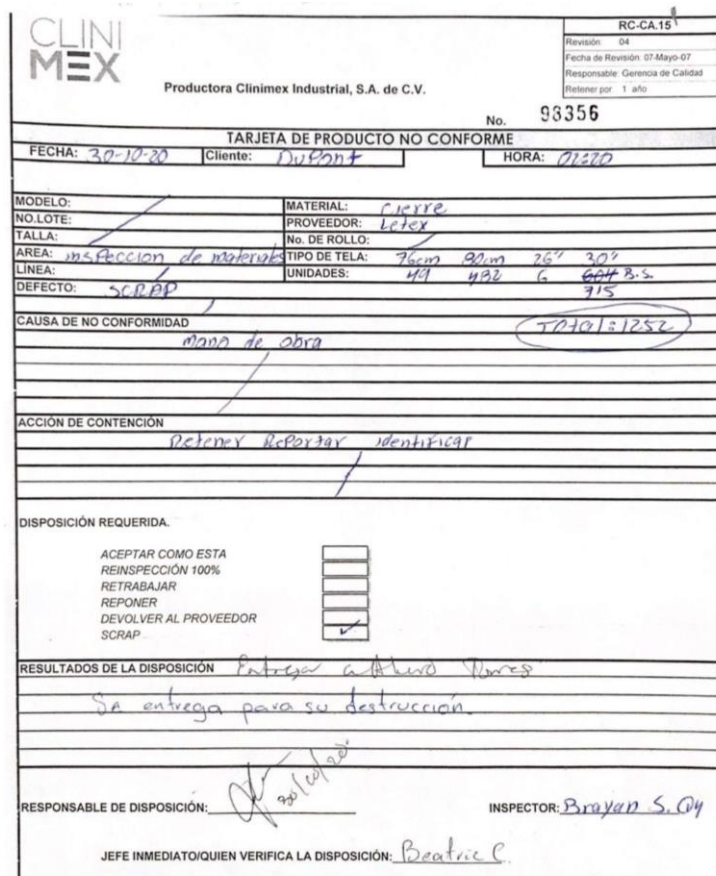 CLINI
MEX
RC-CA.15
Revisión 04
Fecha de Revisión: 07-Mayo-07
Responsable: Gerencia de Calidad
Retener por 1 año
Productora Clinimex Industrial, S.A. de C.V.
No. 98356
TARJETA DE PRODUCTO NO CONFORME
FECHA: 30-10-20 Cliente: DuPont HORA: 02:20
MODELO: MATERIAL: cierre
NO.LOTE: PROVEEDOR: Letex
TALLA: No. DE ROLLO:
AREA: inspeccion de materiales TIPO DE TELA: 76cm 80cm 26" 30"
LÍNEA: UNIDADES: 49 482 6 604 B.S.
DEFECTO: SCRAP 715
CAUSA DE NO CONFORMIDAD Total:1252
mano de obra
ACCIÓN DE CONTENCIÓN
Detener Reportar identificar
DISPOSICIÓN REQUERIDA.
ACEPTAR COMO ESTA
REINSPECCIÓN 100%
RETRABAJAR
REPONER
DEVOLVER AL PROVEEDOR
SCRAP ✓
RESULTADOS DE LA DISPOSICIÓN Entregar a
Se entrega para su destrucción.
30/10/20
RESPONSABLE DE DISPOSICIÓN: INSPECTOR: Brayan S.
JEFE INMEDIATO/QUIEN VERIFICA LA DISPOSICIÓN: Beatriz C.